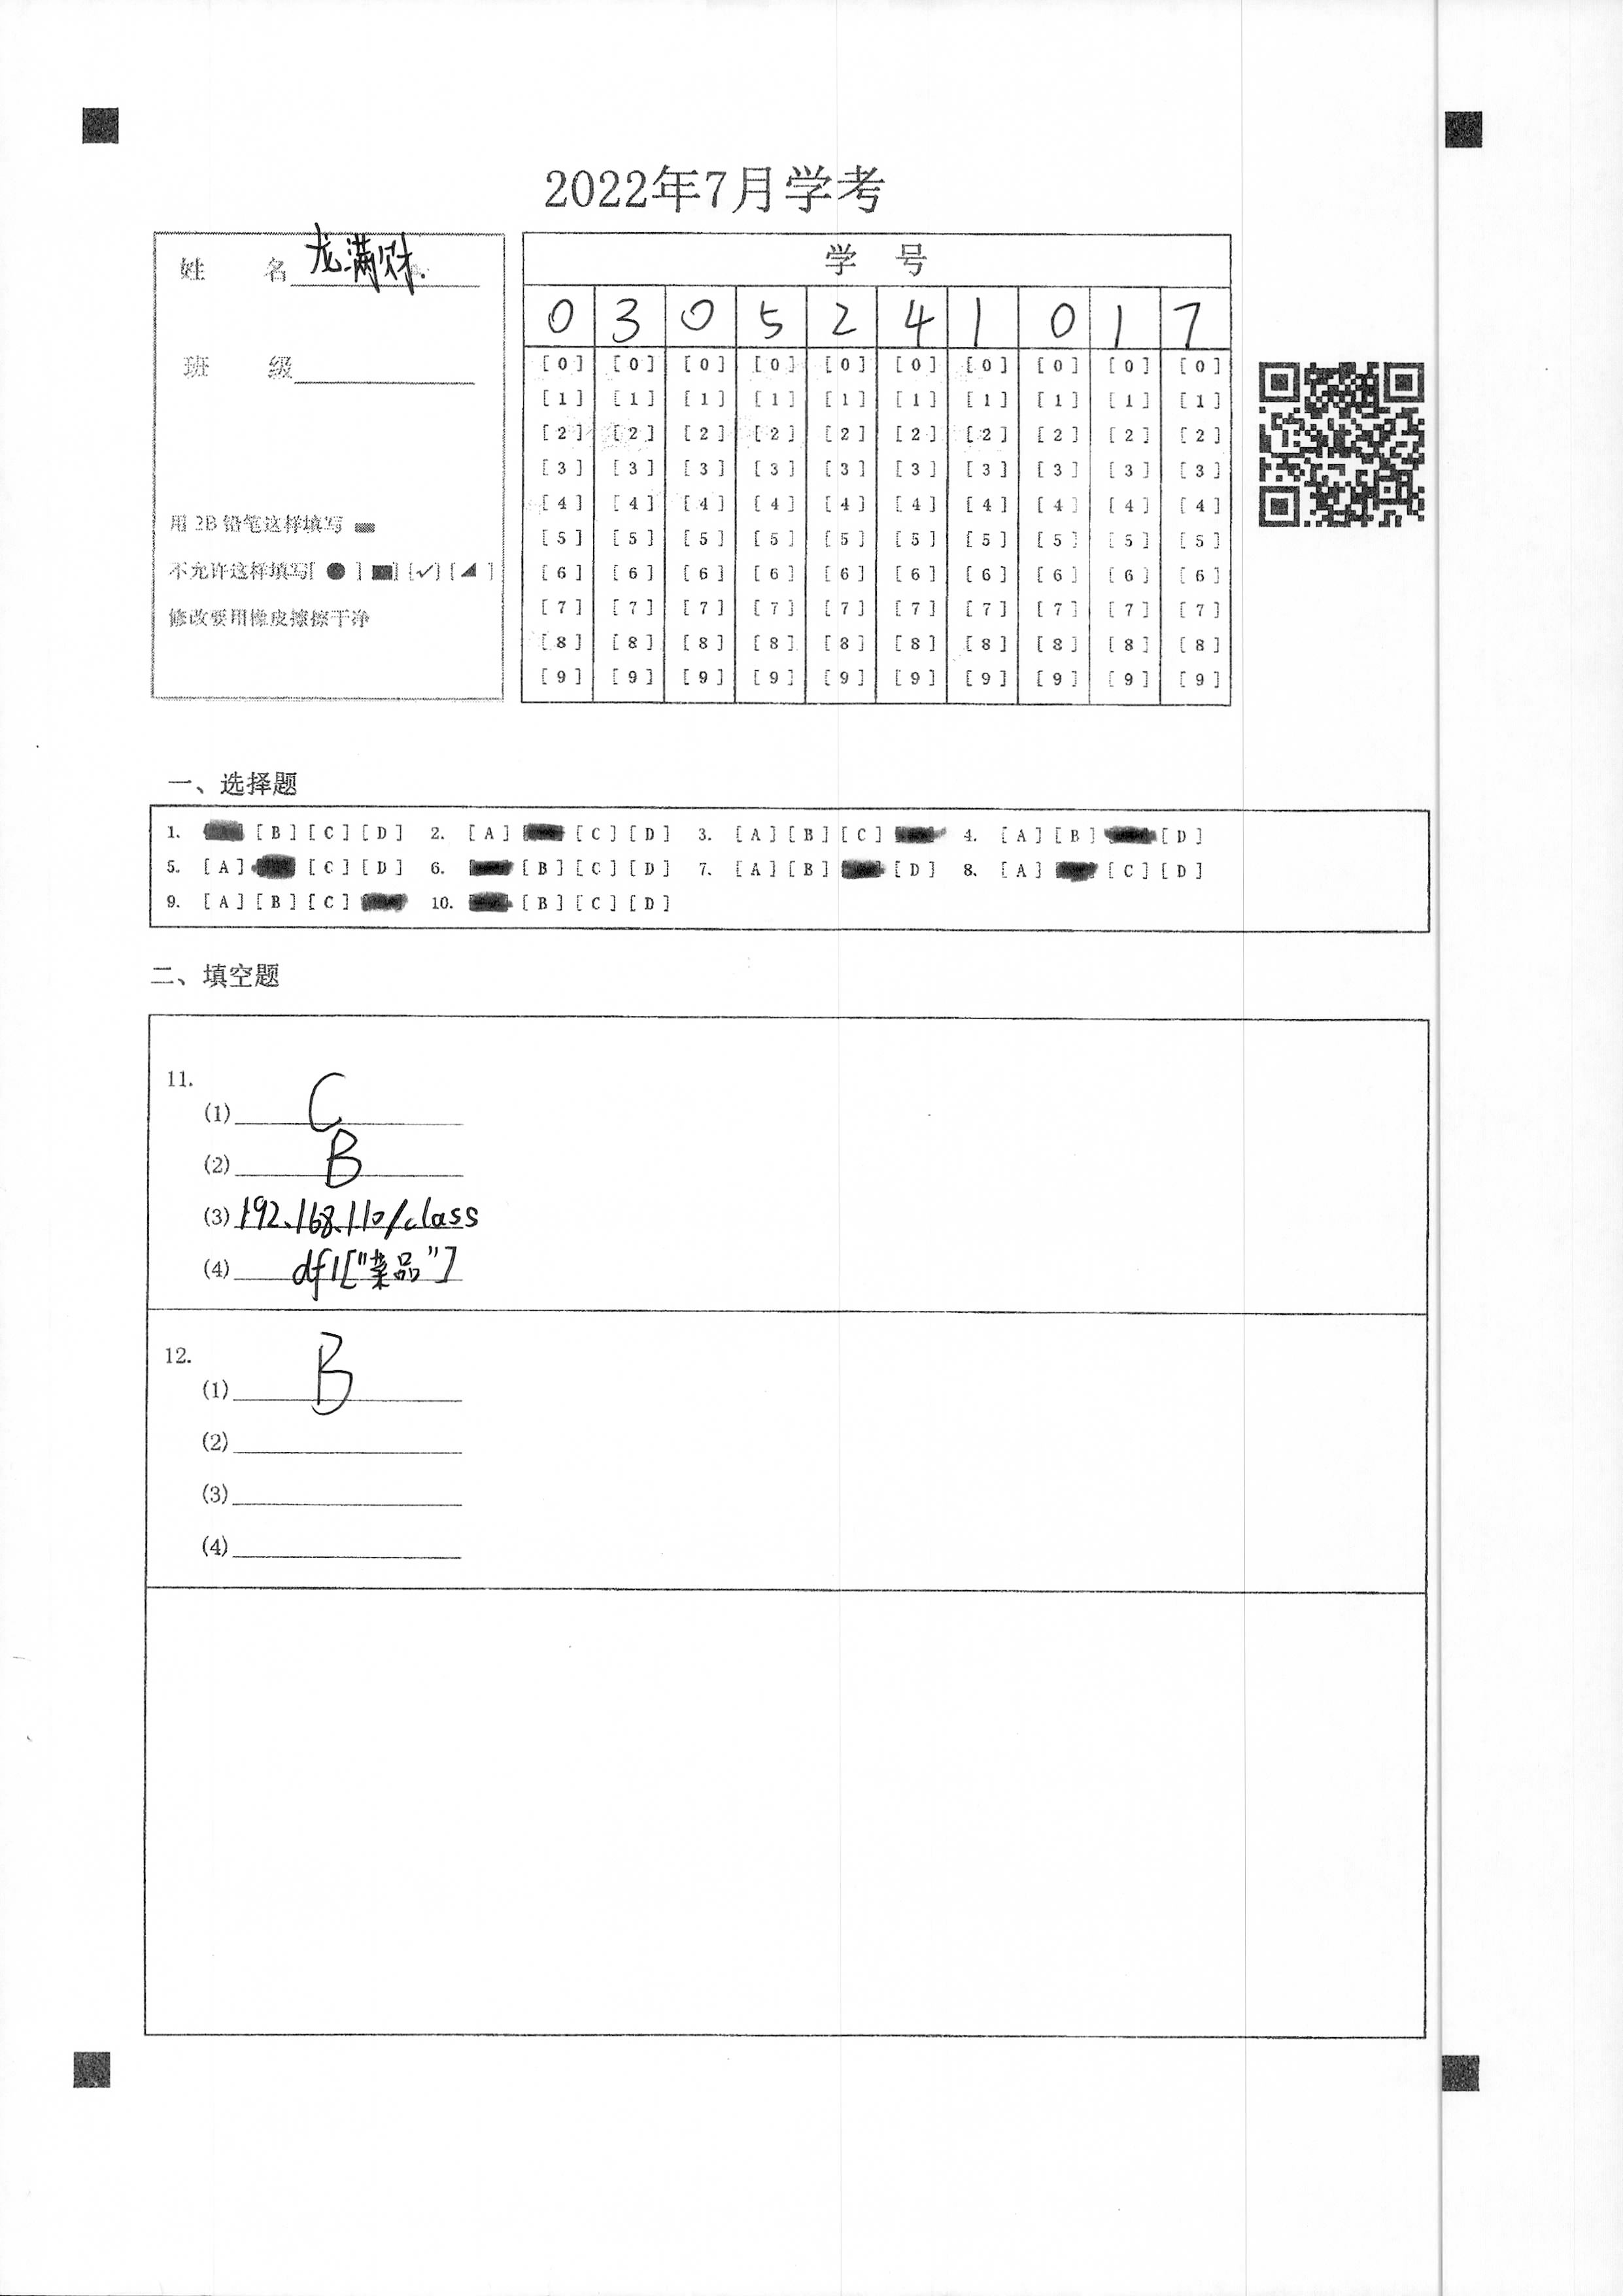 2022年7月学考
姓 名 龙满财.
班 级
用 2B 铅笔这样填写
不允许这样填写[ ● ] [■] [✓] [◢ ]
修改要用橡皮擦擦干净
学 号
0 3 0 5 2 4 1 0 1 7
[0] [0] [0] [0] [0] [0] [0] [0] [0] [0]
[1] [1] [1] [1] [1] [1] [1] [1] [1] [1]
[2] [2] [2] [2] [2] [2] [2] [2] [2] [2]
[3] [3] [3] [3] [3] [3] [3] [3] [3] [3]
[4] [4] [4] [4] [4] [4] [4] [4] [4] [4]
[5] [5] [5] [5] [5] [5] [5] [5] [5] [5]
[6] [6] [6] [6] [6] [6] [6] [6] [6] [6]
[7] [7] [7] [7] [7] [7] [7] [7] [7] [7]
[8] [8] [8] [8] [8] [8] [8] [8] [8] [8]
[9] [9] [9] [9] [9] [9] [9] [9] [9] [9]
一、选择题
1. [B] [C] [D] 2. [A] [C] [D] 3. [A] [B] [C] 4. [A] [B] [D]
5. [A] [C] [D] 6. [B] [C] [D] 7. [A] [B] [D] 8. [A] [C] [D]
9. [A] [B] [C] 10. [B] [C] [D]
二、填空题
11.
(1) C
(2) B
(3) 192.168.1.10/class
(4) df1["菜品"]
12.
(1) B
(2)
(3)
(4)